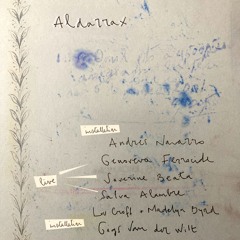 Aldarrax
installation
Andrés Navarro
Genoveva Ferrando
live
Severine Beata
Salva Alambre
Lou Croff + Madelyn Byrd
installation
Gays Van der Wilt